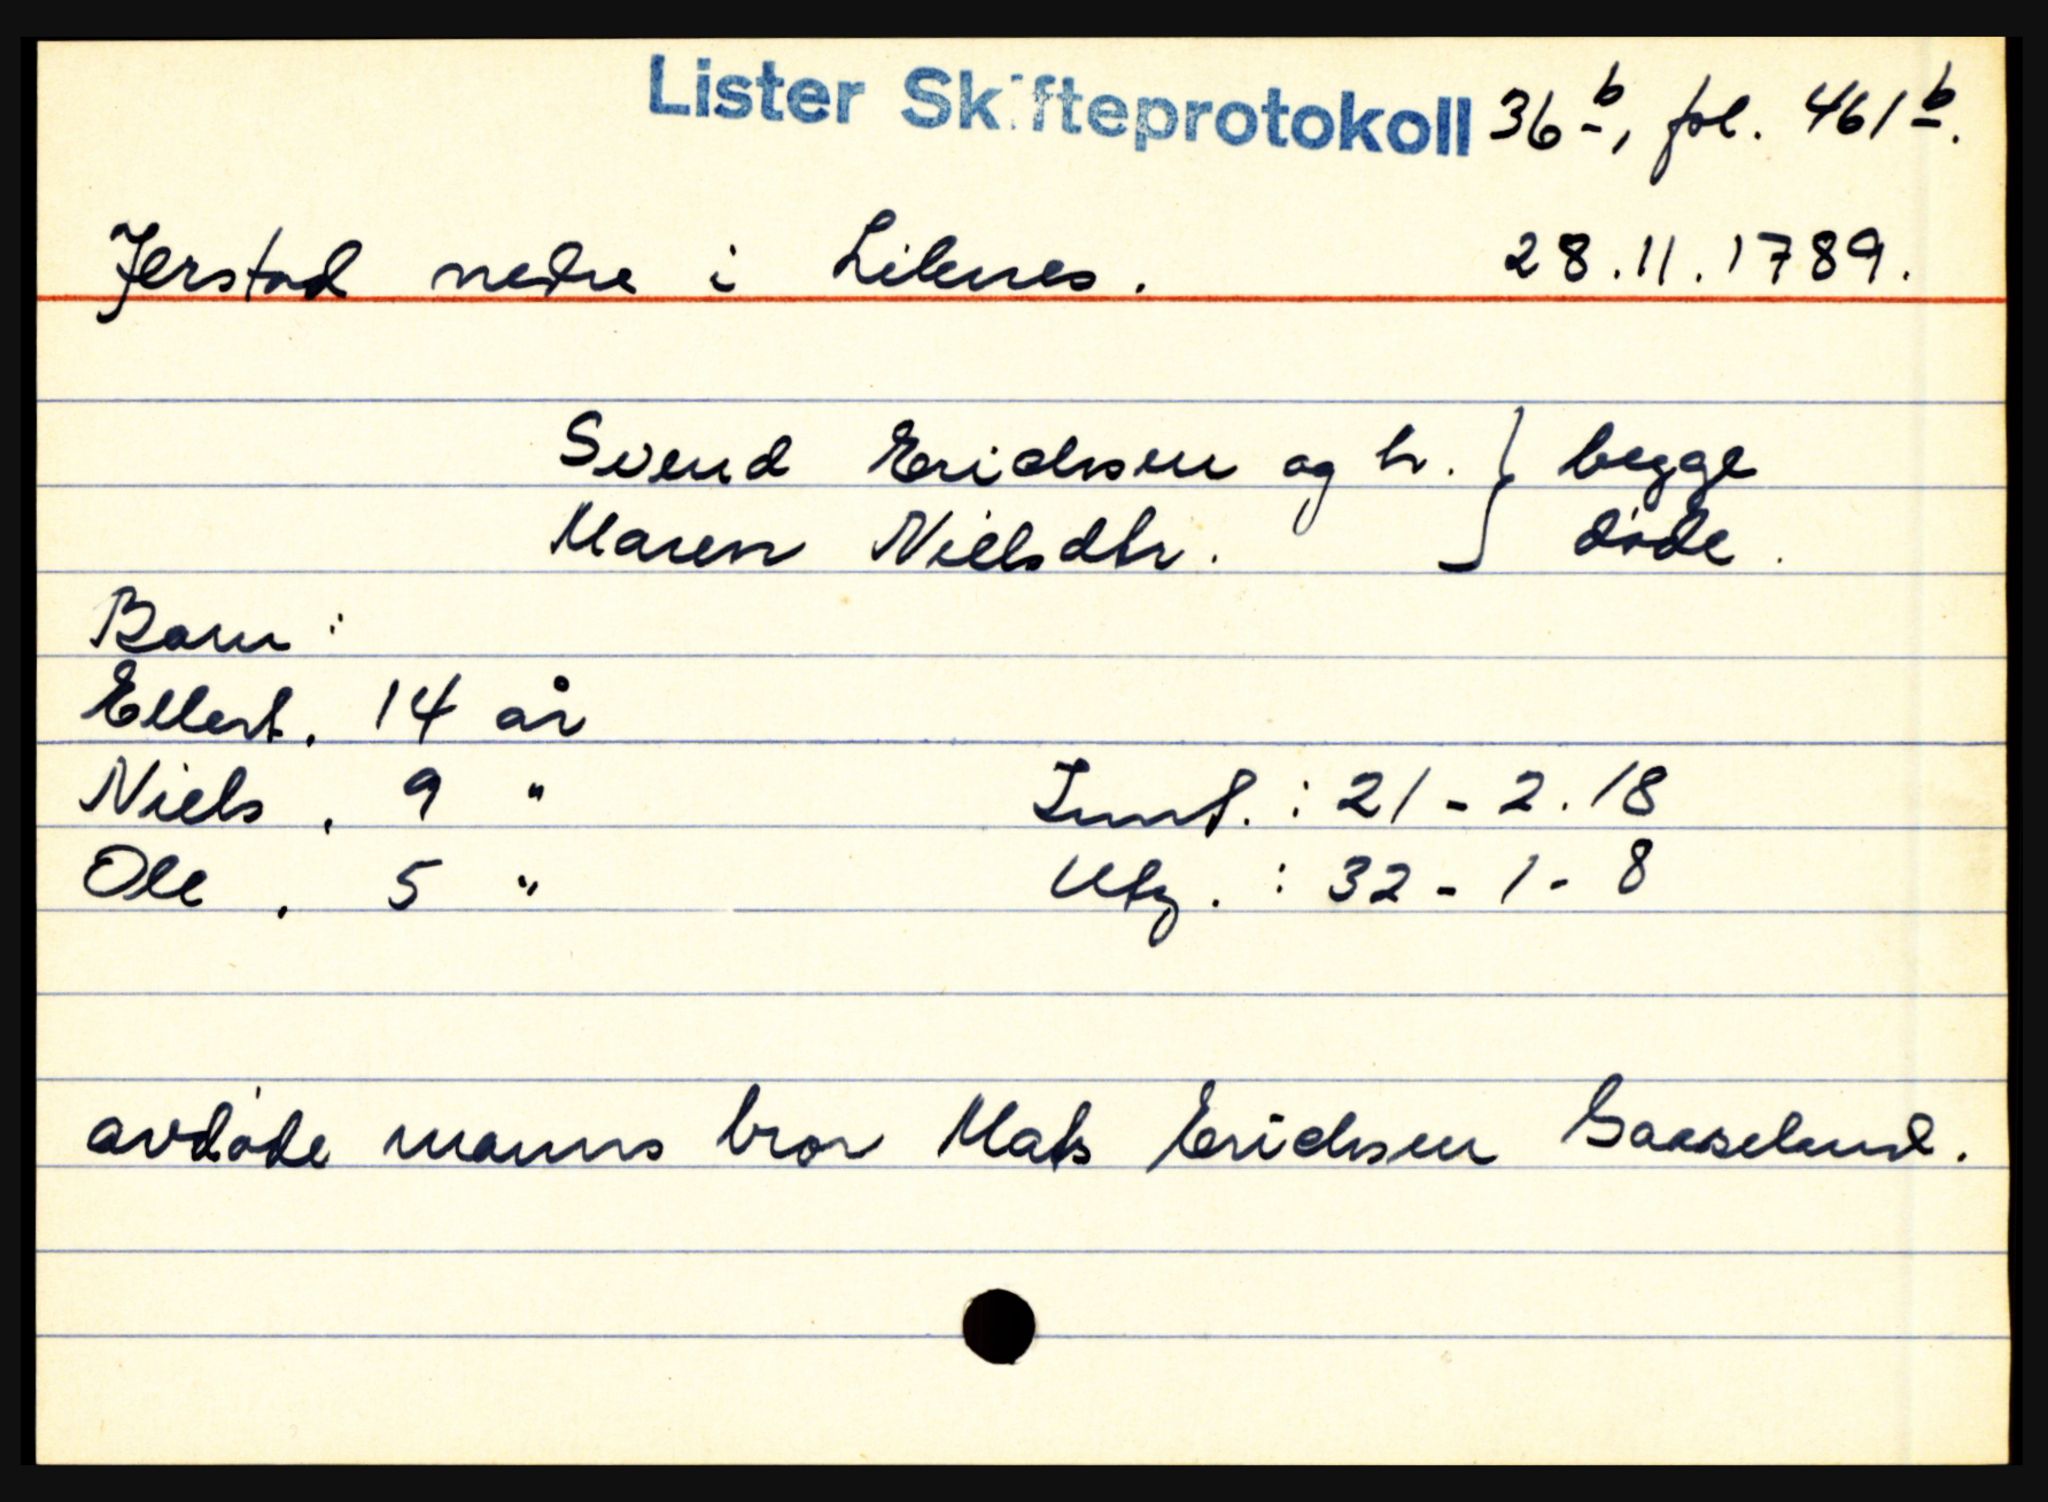 Lister Skifteprotokoll 36b, fol. 461b.
Jerstad nedre i Liknes. 28.11.1789.
Svend Erichsen og h. } begge
Maren Nielsdtr. døde.
Barn:
Ellert. 14 år
Niels. 9 " Innt.: 21-2.18
Ole. 5 " Utg.: 32-1-8
avdøde manns bror Mats Erichsen Gaaseland.